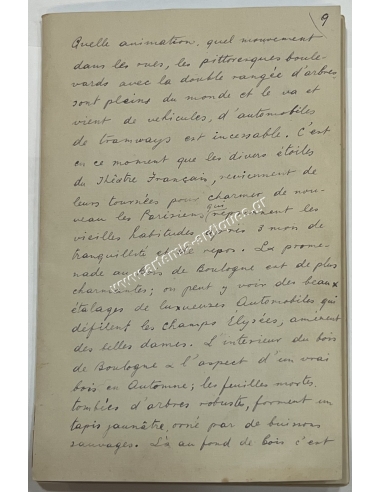 9
Quelle animation, quel mouvement
dans les rues, les pittoresques boule-
vards avec la double rangée d'arbres
sont pleins du monde et le va et
vient de vehicules, d'automobiles
de tramways est incessable. C'est
en ce moment que les divers étoiles
du Théâtre Français, reviennent de
leurs tournées pour charmer de nou-
veau les Parisiens qui reprennent les
vieilles habitudes, après 3 mon de
tranquillité et de repos. La prome-
nade au bois de Boulogne est de plus
charmantes; on peut y voir des beaux
étalages de luxueuses Automobiles qui
défilent les champs Élysées, amènent
des belles dames. L'interieur du bois
de Boulogne a l'aspect d'un vrai
bois en Automne; les feuilles mortes
tombées d'arbres robustes, forment un
tapis jaunâtre, orné par de buissons
sauvages. Là au fond de bois c'est